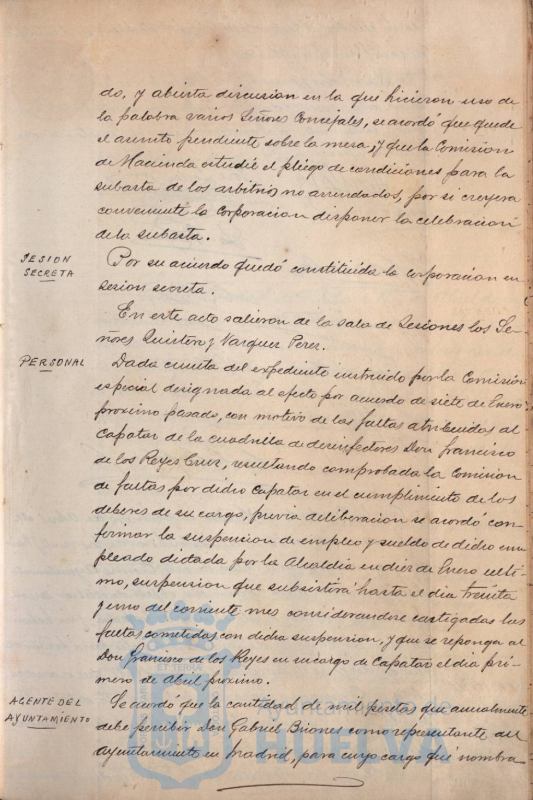 do, y abierta discusion en la que hicieron uso de
la palabra varios Señores Concejales, se acordó que quede
el asunto pendiente sobre la mesa, y que la Comision
de Hacienda estudie el pliego de condiciones para la
subasta de los arbitrios no arrendados, por si creyera
conveniente la Corporacion disponer la celebracion
de la subasta.
SESION
SECRETA
Por su acuerdo quedó constituida la Corporacion en
sesion secreta.
En este acto salieron de la sala de Sesiones los Se-
ñores Quintero y Vazquez Perez.
PERSONAL
Dada cuenta del expediente instruido por la Comision
especial designada al efecto por acuerdo de siete de Enero
proximo pasado, con motivo de las faltas atribuidas al
Capataz de la cuadrilla de desinfectores Don Francisco
de los Reyes Cruz, resultando comprobada la Comision
de faltas por dicho Capataz en el cumplimiento de los
deberes de su cargo, previa deliberacion se acordó con-
firmar la suspension de empleo y sueldo de dicho em-
pleado dictada por la Alcaldia en diez de Enero ulti-
mo, suspension que subsistirá hasta el dia treinta
y uno del corriente mes considerandose castigadas las
faltas cometidas con dicha suspension, y que se reponga al
Don Francisco de los Reyes en su cargo de Capataz el dia pri-
mero de Abril proximo.
AGENTE DEL
AYUNTAMIENTO
Se acordó que la cantidad de mil pesetas que anualmente
debe percibir Don Gabriel Briones como representante del
Ayuntamiento en Madrid, para cuyo cargo fué nombra-
Ayuntamiento de
HUELVA